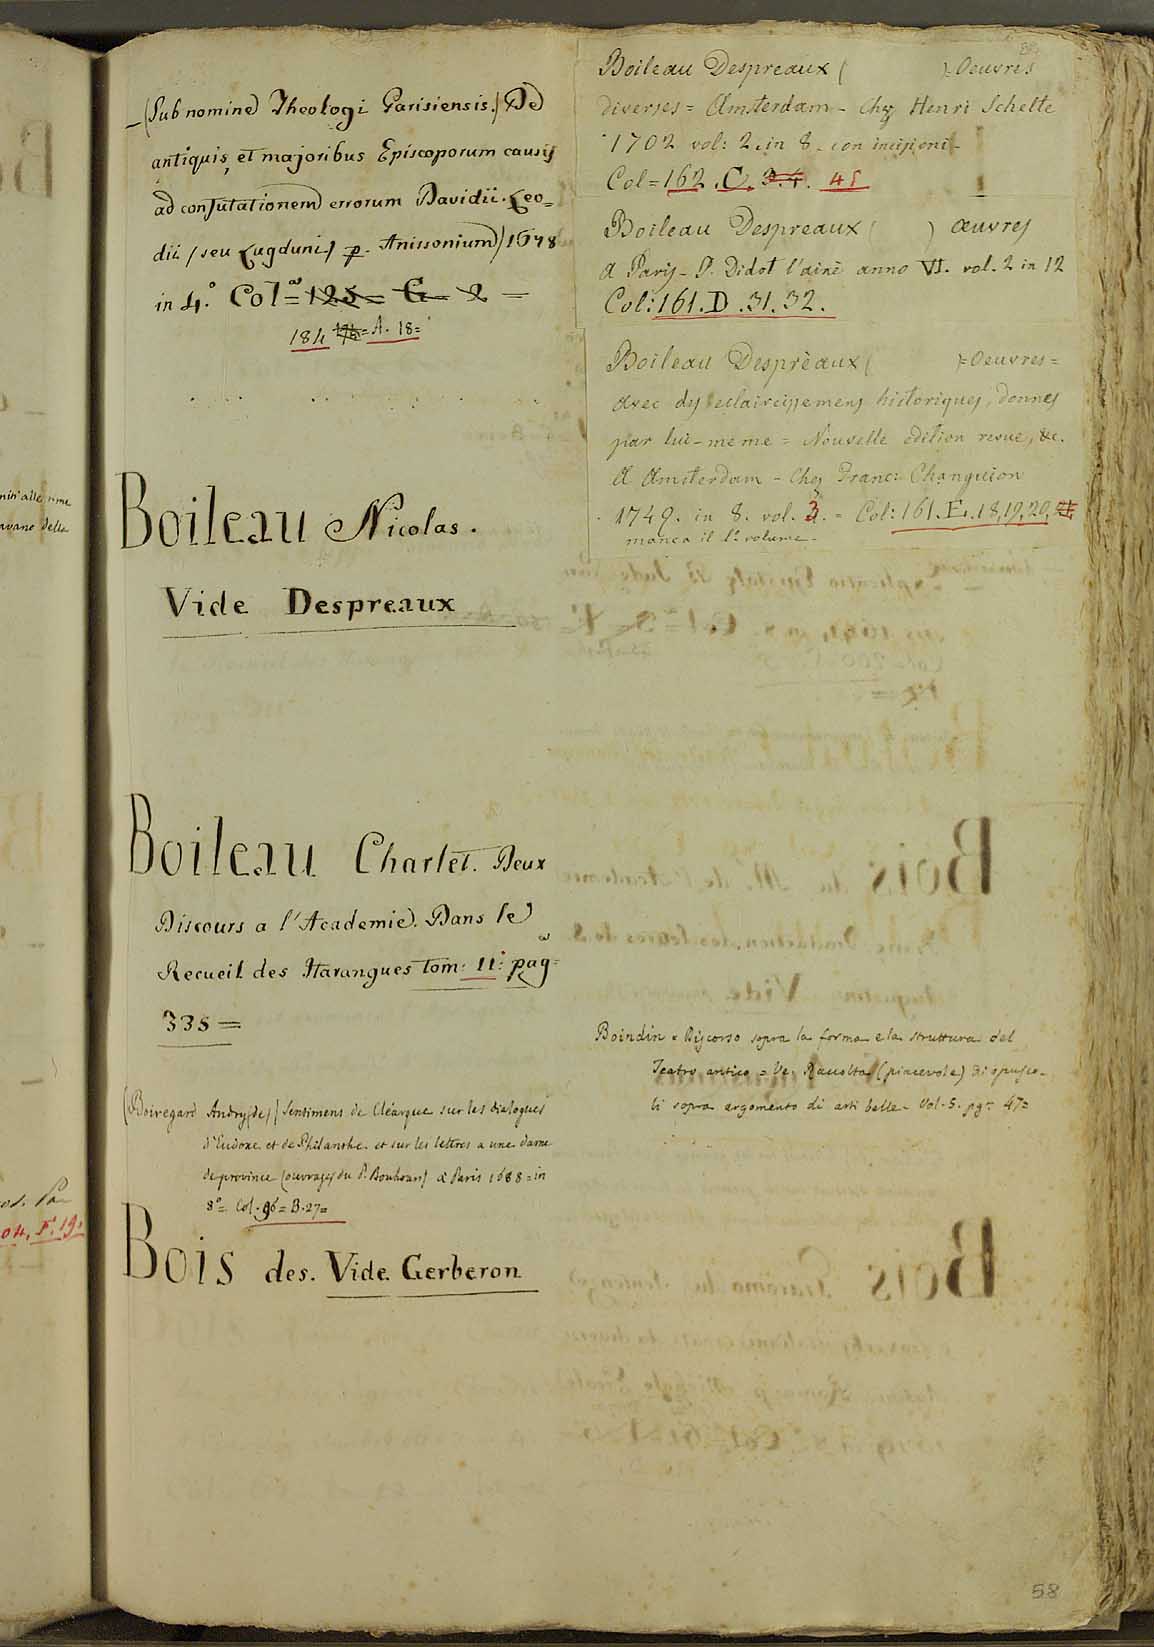 _(Sub nomine Theologi Parisiensis.) De
antiquis, et majoribus Episcoporum causis
ad confutationem errorum Davidii. Leo=
dii (seu Lugduni) p. Anissonium) 1678
in 4.º Col.ª = 125 = G = 2 =
184 = A. 18 =
Boileau Nicolas.
Vide Despreaux
Boileau Charlet. Deux
Discours a l'Academie. Dans le
Recueil des Harangues tom: II: pag=
335 =
(Boiregard Andry (de) / Sentimens de Cléarque sur les dialogues
d'Eudoxe et de Philanthe. et sur les lettres a une dame
de province (ouvrages du P. Bouhours) a Paris 1688 = in
8º = Col. 96 = B. 27 =
Bois des. Vide Gerberon
Boileau Despreaux ( )= Oeuvres
diverses = Amsterdam - Chez Henri Schelte
1702 vol: 2. in 8. con incisioni -
Col = 162 . C. 3.4. 45
Boileau Despreaux ( ) œuvres
A Paris - P. Didot l'ainè anno VI. vol. 2 in 12
Col: 161. D. 31. 32.
Boileau Desprèaux ( )= Oeuvres =
avec des eclaircissemens historiques, donnes
par lui-meme = Nouvelle edition revue, &c.
A Amsterdam - Chez Franc: Changuion
1749. in 8. vol. 3. = Col: 161. E. 18, 19, 20,
manca il 1º volume -
Boindin = Discorso sopra la forma e la struttura del
Teatro antico = Ve. Raccolta (piacevole) di opusco-
li sopra argomento di arti belle - Vol. 5. pgª 47 =
58